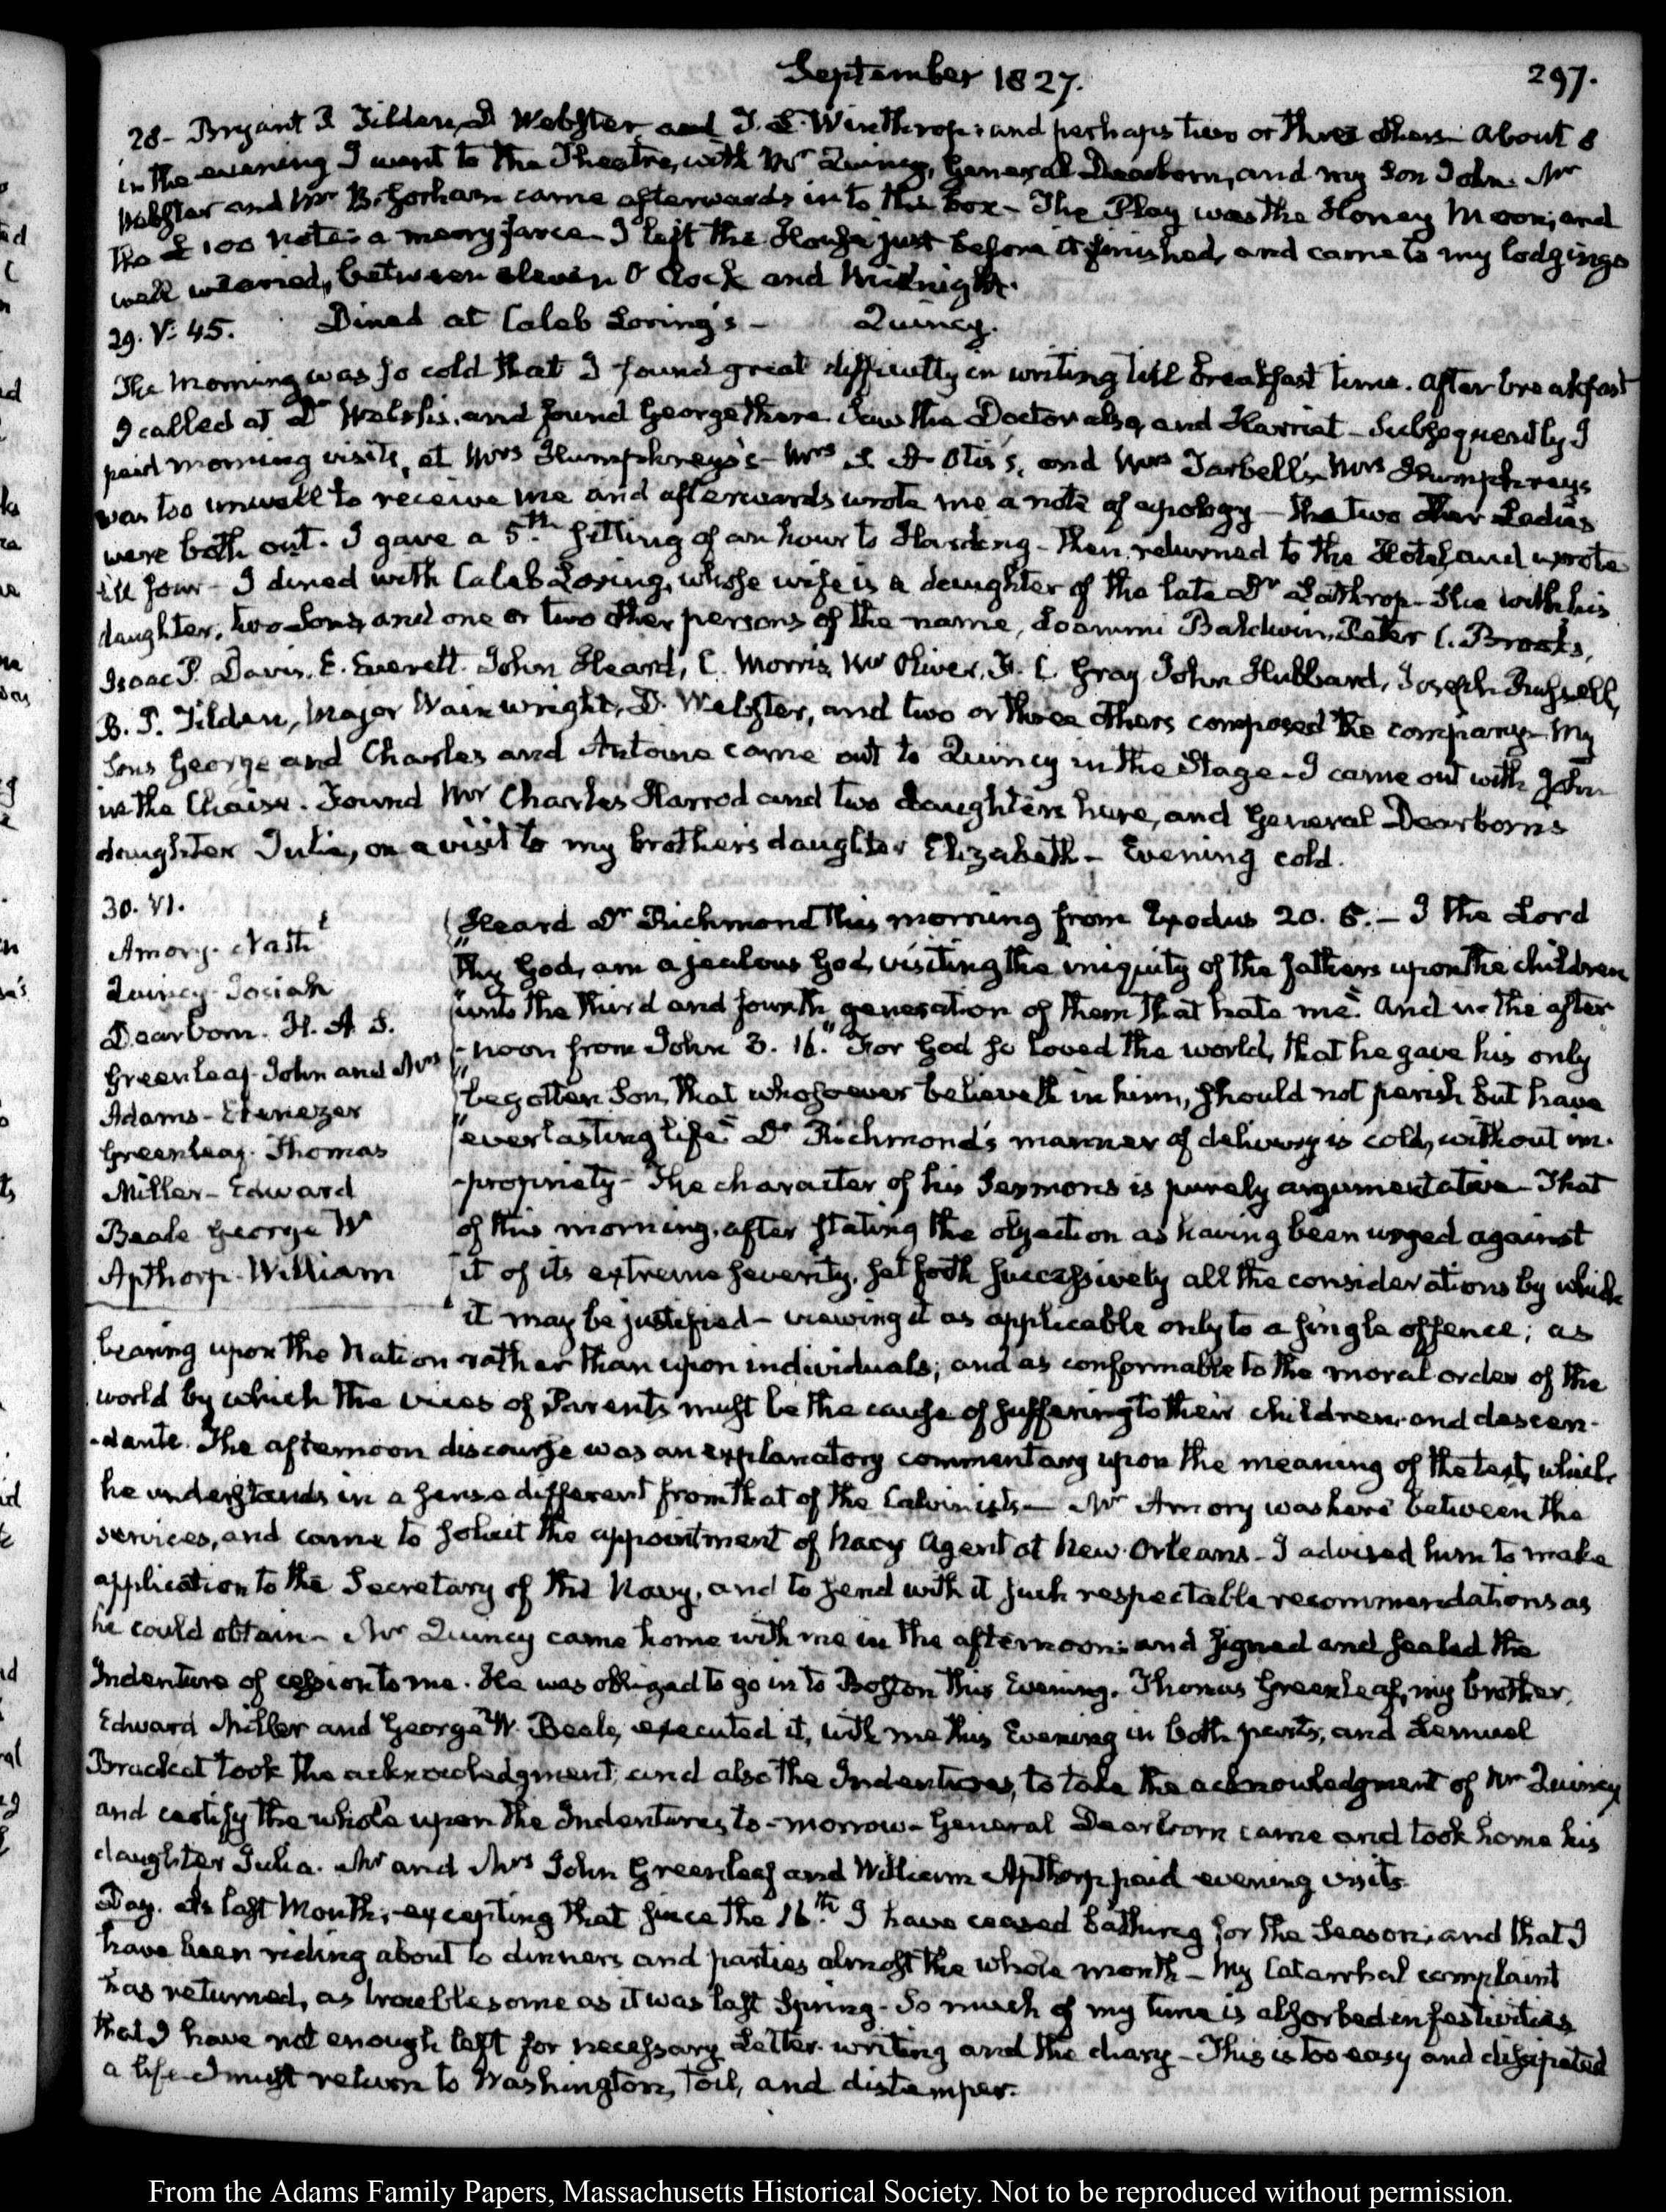 September 1827.
297.
28- Bryant P. Tilden, D Webster and T. L. Winthrop; and perhaps two or three others- About 8
in the evening I went to the Theatre, with Mr Quincy, General Dearborn, and my Son John. Mr
Webster and Mr B. Gorham came afterwards into the box- The Play was the Honey Moon; and
the £100 note: a merry farce- I left the House just before it finished, and came to my lodgings
well wearied, between eleven O'Clock and Midnight.
29. V: 45. Dined at Caleb Loring's- Quincy.
The morning was so cold that I found great difficulty in writing till breakfast time. After breakfast
I called at Dr Welsh's, and found George there. Saw the Doctor also, and Harriet- Subsequently I
paid morning visits, at Mrs Humphreys's- Mrs H. G. Otis's, and Mrs Tarbell's- Mrs Humphreys
was too unwell to receive me and afterwards wrote me a note of apology- The two other Ladies
were both out. I gave a 5th. sitting of an hour to Harding- Then returned to the Hotel, and wrote
till four- I dined with Caleb Loring, whose wife is a daughter of the late Dr Lathrop- She with his
daughter, two Sons, and one or two other persons of the name, Loammi Baldwin, Peter C. Brooks,
Isaac P. Davis, E. Everett. John Heard, C. Morris, Mr Oliver, F. C. Gray John Hubbard, Joseph Russell,
B. P. Tilden, Major Wainwright, D. Webster, and two or three others composed the company- My
Sons George and Charles and Antoine came out to Quincy in the Stage- I came out with John
in the Chaise. Found Mr Charles Harrod and two daughters here, and General Dearborn's
daughter Julia, on a visit to my brother's daughter Elizabeth- Evening cold.
30. VI.
Amory. Nathl
Quincy- Josiah
Dearborn. H. A. S.
Greenleaf- John and Mrs
Adams- Ebenezer
Greenleaf. Thomas
Miller- Edward
Beale George W
Apthorp- William
Heard Dr Richmond this morning from Exodus 20. 5.- I the Lord
"thy God, am a jealous God, visiting the iniquity of the fathers upon the children
"unto the third and fourth generation of them that hate me" And in the after
-noon from John 3. 16. "For God so loved the world, that he gave his only
"begotten Son, that whosoever believeth in him, should not perish but have
"everlasting life" Dr Richmond's manner of delivery is cold, without im-
-propriety- The character of his Sermons is purely argumentative- That
of this morning, after stating the objection as having been urged against
it of its extreme severity, set forth successively all the considerations by which
it may be justified- viewing it as applicable only to a single offence; as
bearing upon the Nation rather than upon individuals; and as conformable to the moral order of the
world by which the vices of Parents must be the cause of suffering to their children and descen-
-dants. The afternoon discourse was an explanatory commentary upon the meaning of the text, which
he understands in a sense different from that of the Calvinists- Mr Amory was here between the
services, and came to solicit the appointment of Navy Agent at New-Orleans- I advised him to make
application to the Secretary of the Navy, and to send with it such respectable recommendations as
he could obtain- Mr Quincy came home with me in the afternoon; and signed and sealed the
Indenture of cession to me. He was obliged to go in to Boston this Evening. Thomas Greenleaf, my brother,
Edward Miller and George W. Beale, executed it, with me this Evening in both parts, and Lemuel
Bracket took the acknowledgment, and also the Indentures, to take the acknowledgment of Mr Quincy
and certify the whole upon the Indentures to-morrow- General Dearborn came and took home his
daughter Julia. Mr and Mrs John Greenleaf and William Apthorp paid evening visits.
Day. As last Month, excepting that since the 16th. I have ceased bathing for the Season; and that I
have been riding about to dinners and parties almost the whole month- My Catarrhal complaint
has returned, as troublesome as it was last Spring- So much of my time is absorbed in festivities
that I have not enough left for necessary Letter-writing and the diary- This is too easy and dissipated
a life- I must return to Washington, toil, and distemper.
From the Adams Family Papers, Massachusetts Historical Society. Not to be reproduced without permission.